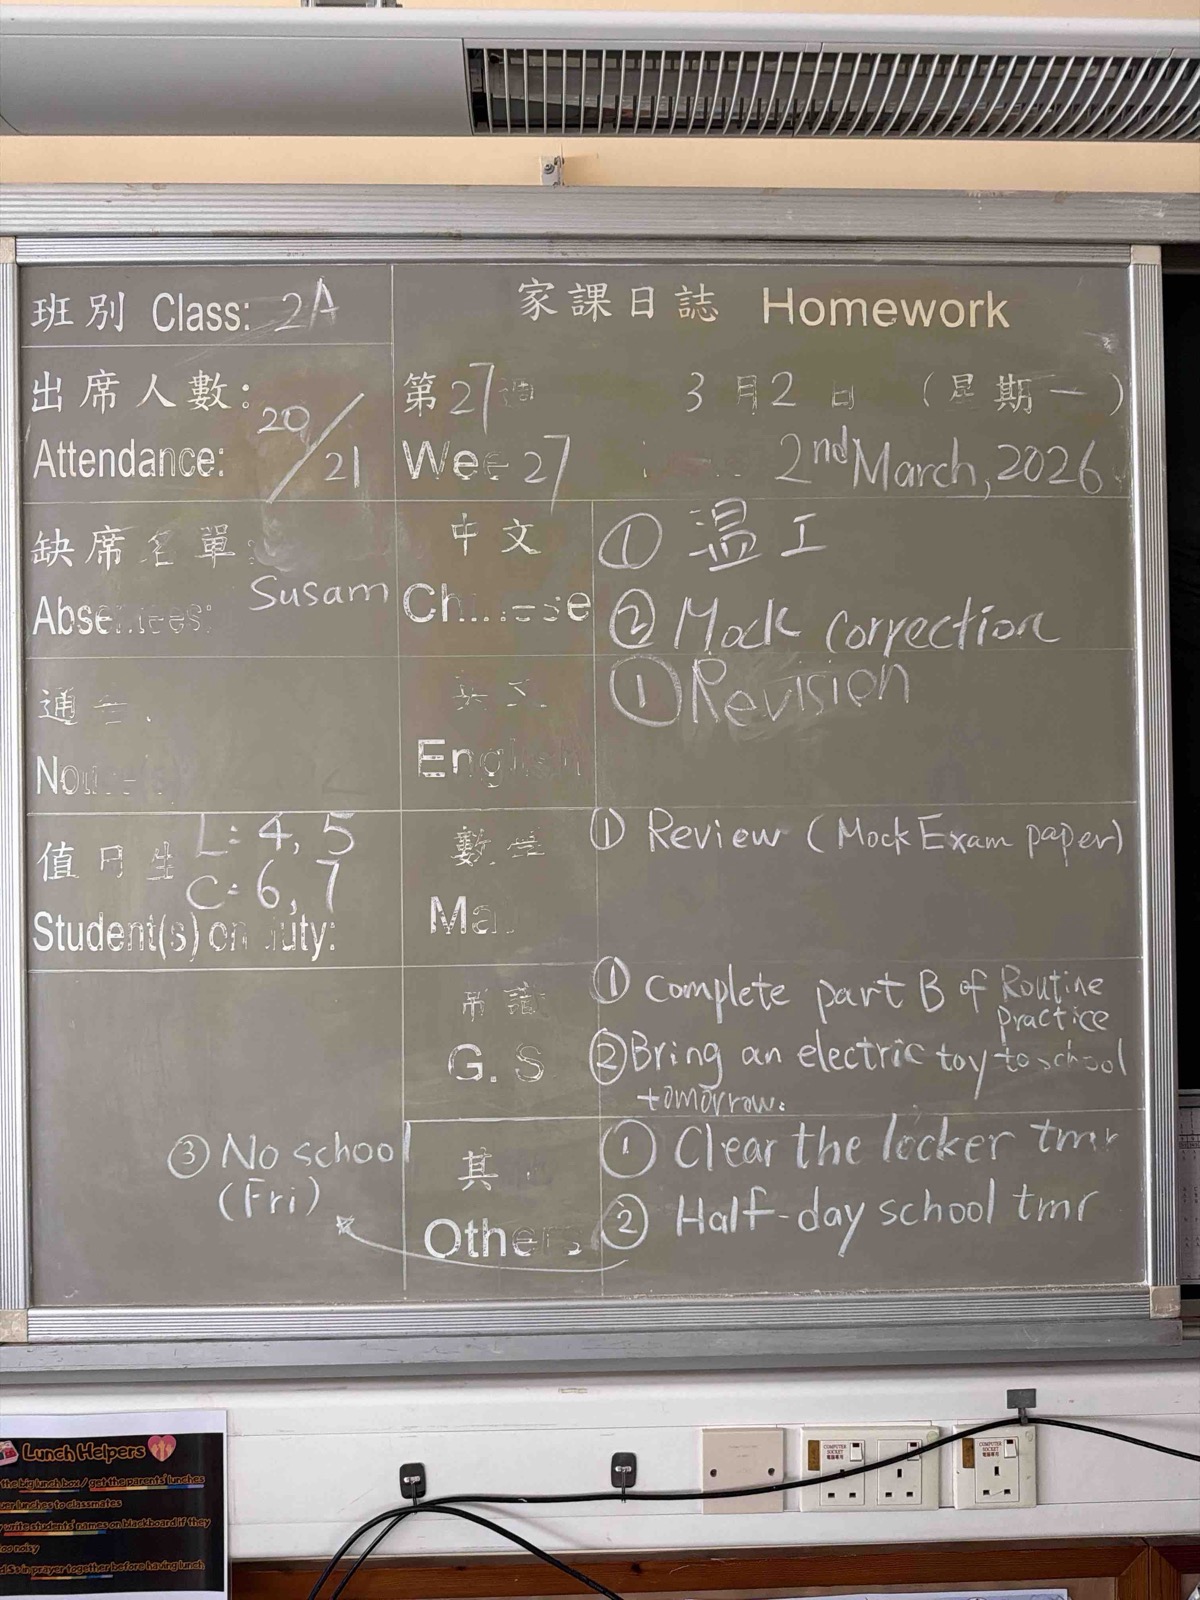 班別 Class: 2A
家課日誌 Homework
出席人數:
Attendance: 20/21
第27週
Week 27
3月2日 (星期一)
2nd March, 2026
缺席名單:
Absentees: Susam
中文
Chinese
① 温工
② Mock correction
通告
英文
English
① Revision
值日生 L: 4, 5
C: 6, 7
Student(s) on duty:
數學
Ma
① Review (Mock Exam paper)
常識
G.S
① Complete part B of Routine
Practice
② Bring an electric toy to school
tomorrow.
其
Others
① Clear the locker tmr
② Half-day school tmr
③ No school
(Fri)
Lunch Helpers
the big lunch box / get the parents' lunches
lunches to classmates
write students' names on blackboard if they
too noisy
in prayer together before having lunch
COMPUTER
SOCKET
電腦專用
COMPUTER
SOCKET
電腦專用